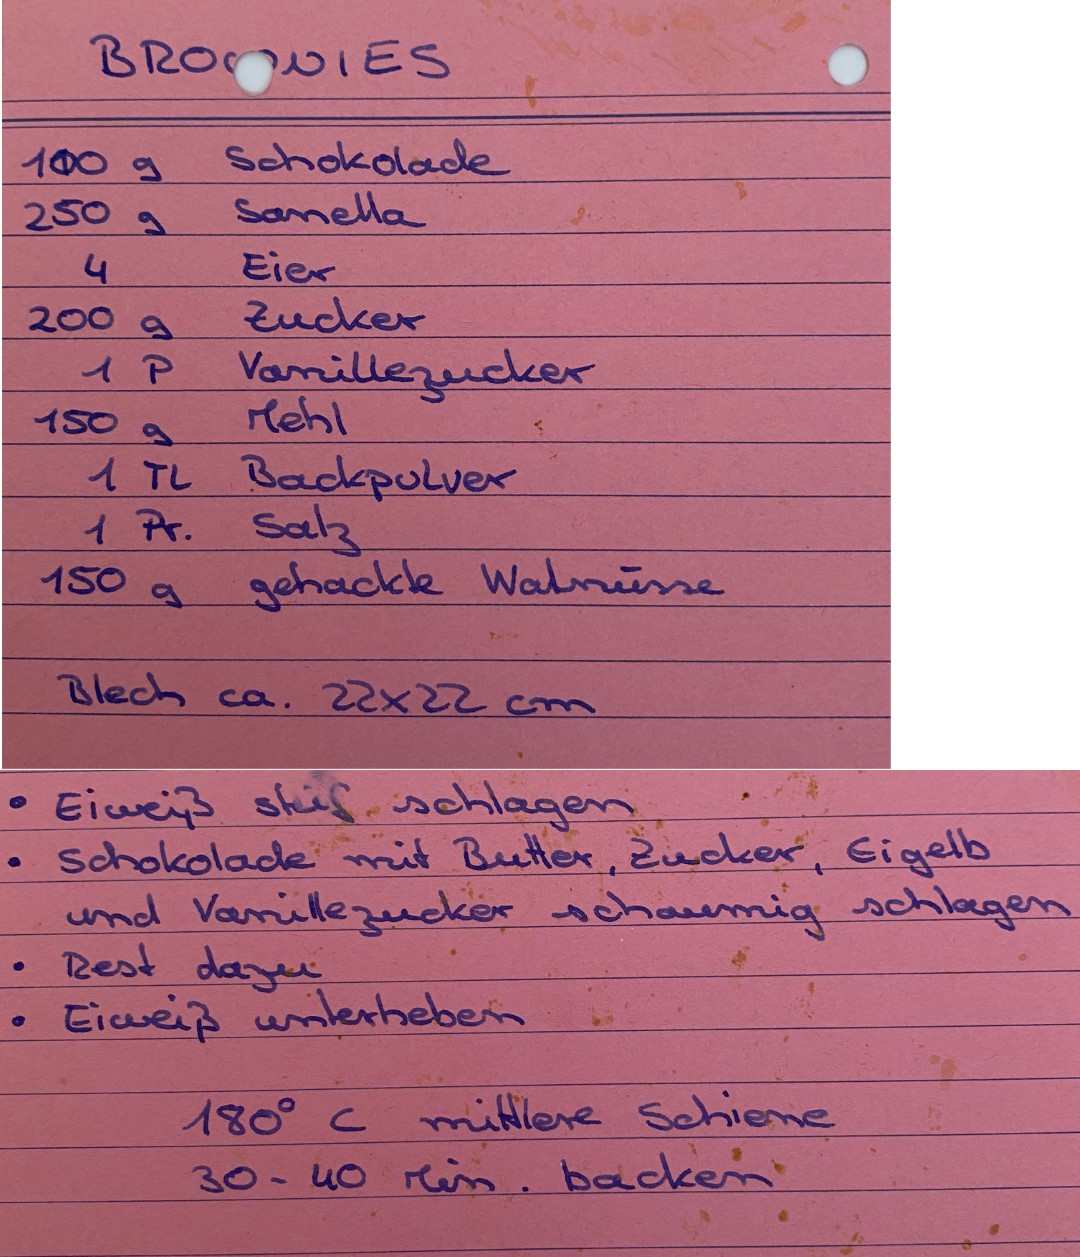 BROWNIES
100 g Schokolade
250 g Sanella
4 Eier
200 g Zucker
1 P Vanillezucker
150 g Mehl
1 TL Backpulver
1 Pr. Salz
150 g gehackte Walnüsse
Blech ca. 22x22 cm
• Eiweiß steif schlagen
• Schokolade mit Butter, Zucker, Eigelb
und Vanillezucker schaumig schlagen
• Rest dazu
• Eiweiß unterheben
180° C mittlere Schiene
30 - 40 Min. backen